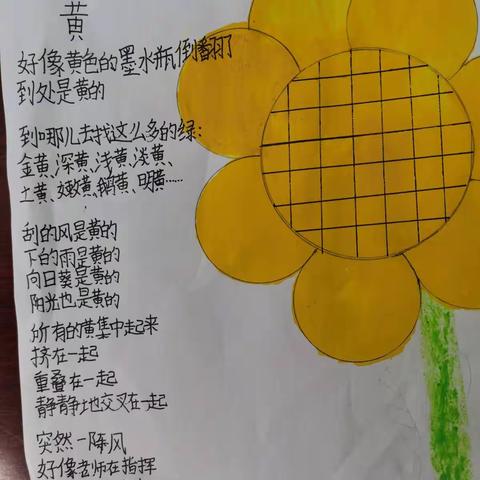 黄
好像黄色的墨水瓶倒翻了
到处是黄的
到哪儿去找这么多的绿:
金黄、深黄、浅黄、淡黄、
土黄、嫩黄、铜黄、明黄……
刮的风是黄的
下的雨是黄的
向日葵是黄的
阳光也是黄的
所有的黄集中起来
挤在一起
重叠在一起
静静地交叉在一起
突然一阵风
好像老师在指挥